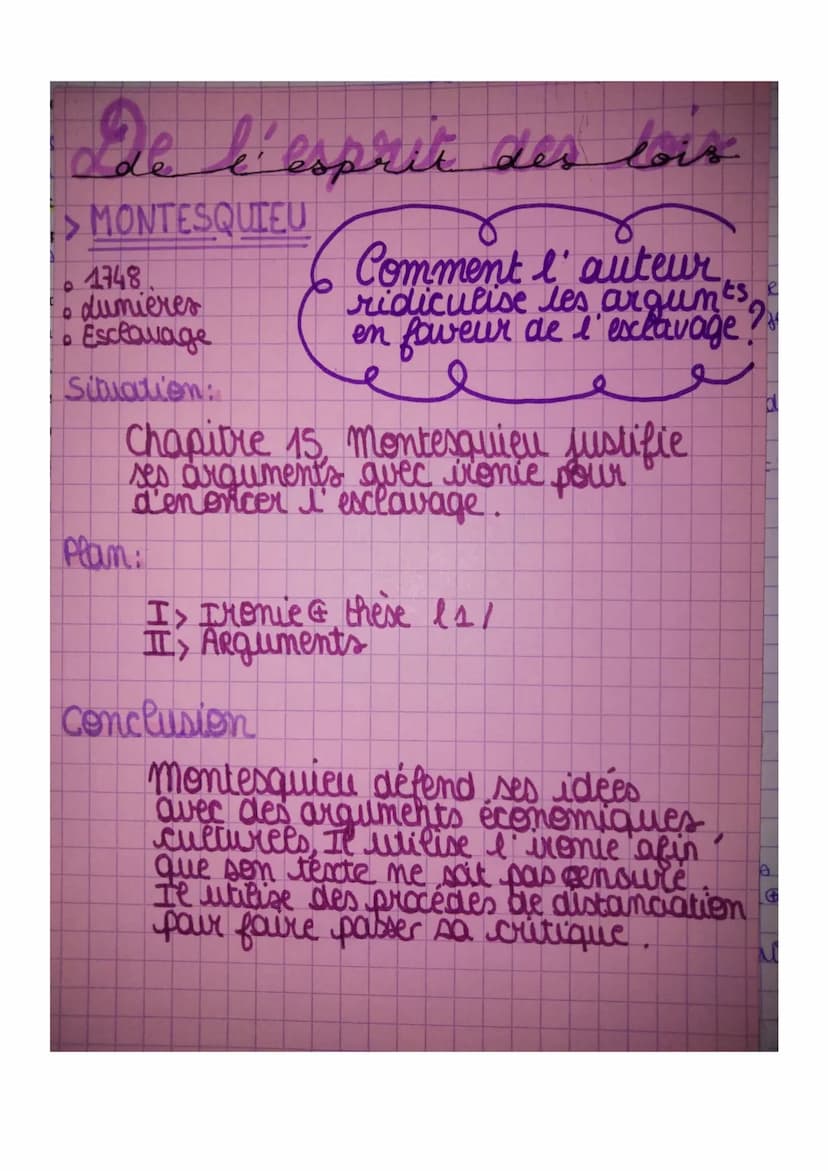 De l'esprit des lois
de l'esprit des lois
> MONTESQUIEU
• 1748
• Lumières
• Esclavage
Comment l'auteur
ridiculise les argumts
en faveur de l'esclavage ?
Situation:
Chapitre 15, Montesquieu justifie
ses arguments avec ironie pour
d'enoncer l'esclavage.
Plan:
I> Ironie ⊕ thèse l1/
II> Arguments
Conclusion
Montesquieu défend ses idées
avec des arguments économiques,
culturels, Il utilise l'ironie afin
que son texte ne soit pas censuré.
Il utilise des procédés de distanciation
pour faire passer sa critique.